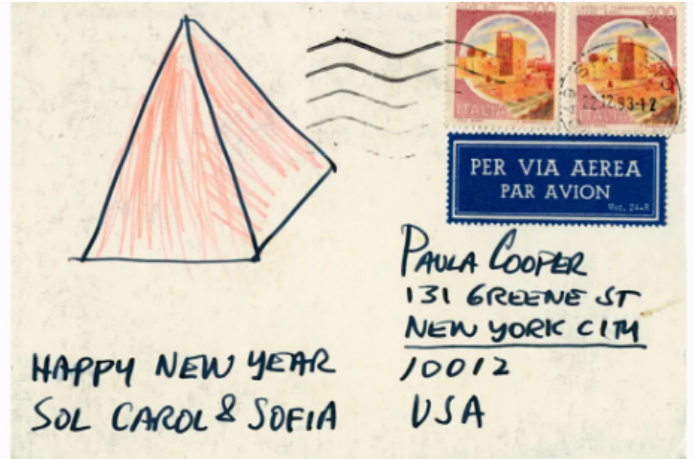 300 300
ITALIA ITALIA
22.12.83-12
PER VIA AEREA
PAR AVION
Mod. 24-B
PAULA COOPER
131 GREENE ST
NEW YORK CITY
10012
USA
HAPPY NEW YEAR
SOL CAROL & SOFIA